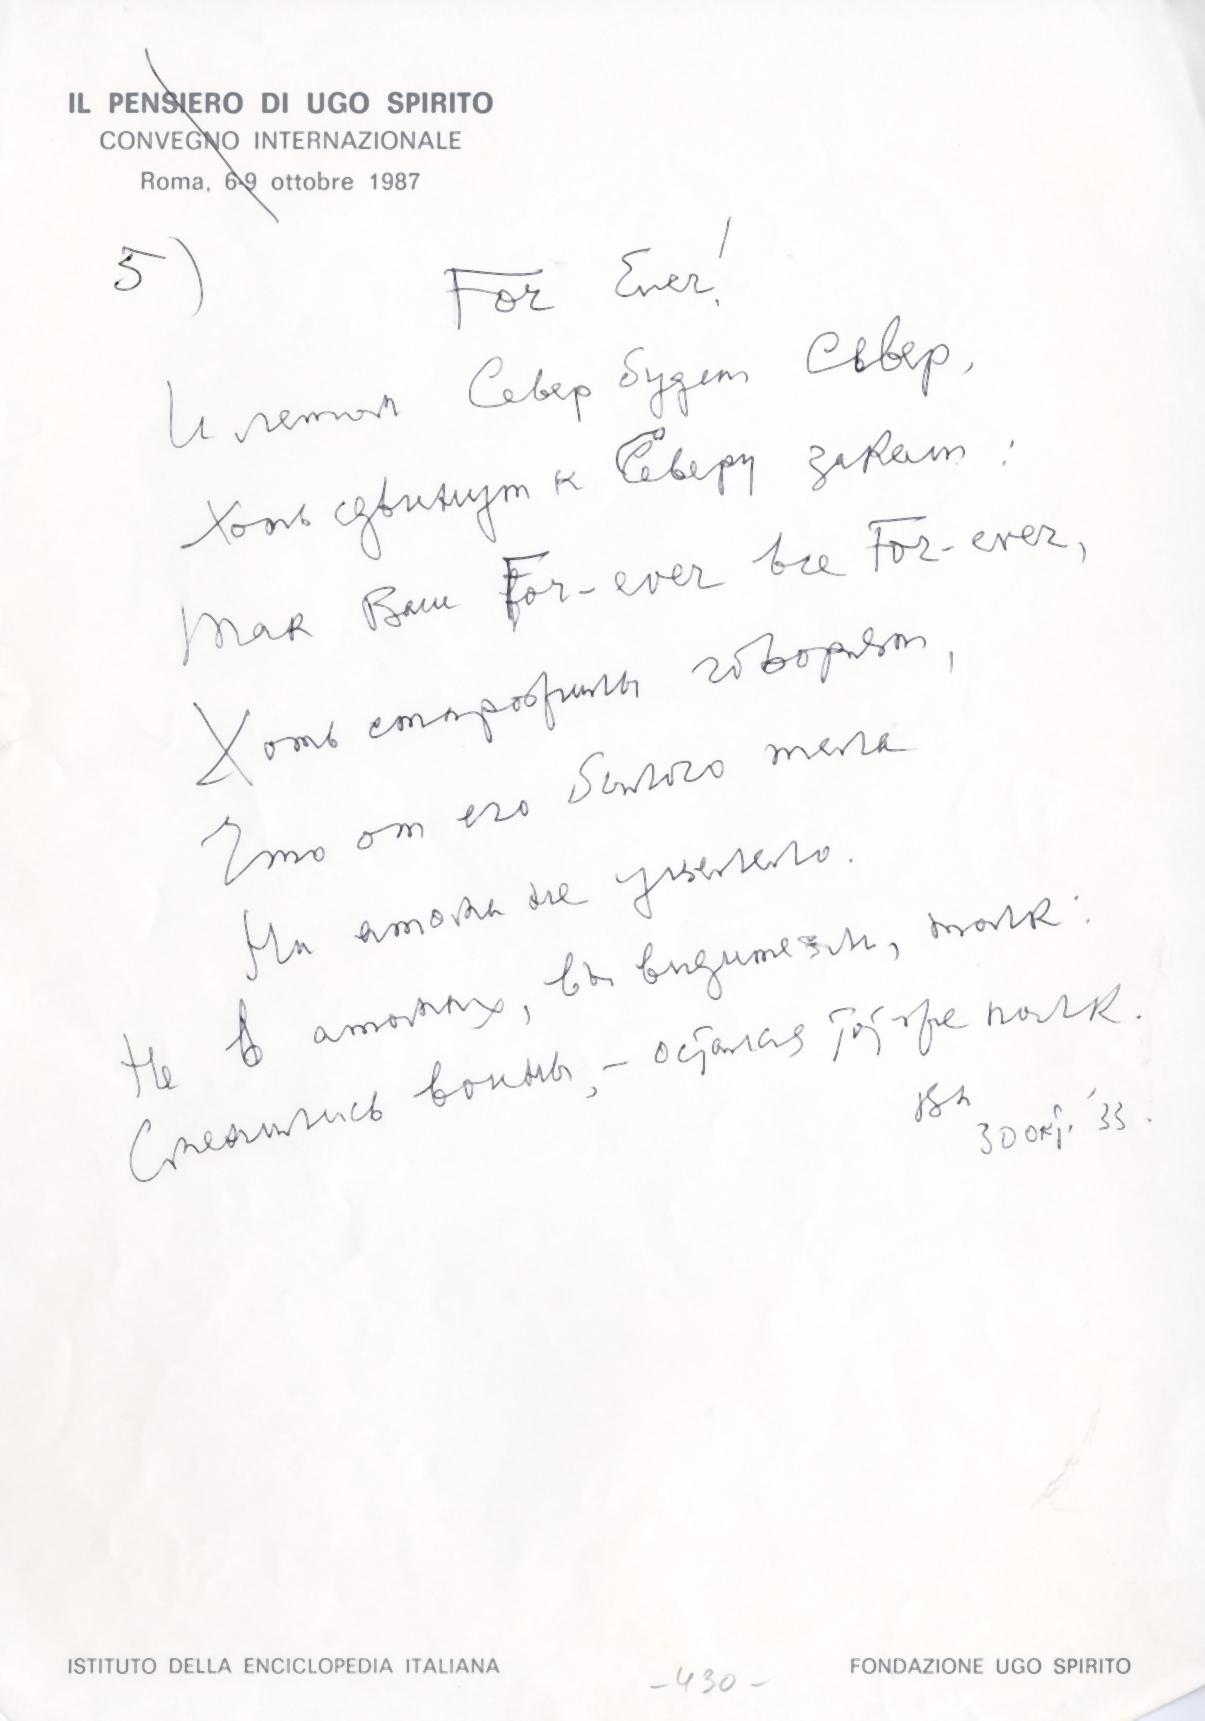 IL PENSIERO DI UGO SPIRITO
CONVEGNO INTERNAZIONALE
Roma, 6-9 ottobre 1987
5)
For Ever!
И летом Север будет Сѣвер,
Хоть сдвинут к Северу закат:
Так Ваш For-ever все For-ever,
Хоть старожилы говорят,
Что от его былого тела
Ни атома не уцелело.
Не в атомах, вы видите ли, толк:
Сменились воины, – остался тот же полк.
30 окт. '33.
ISTITUTO DELLA ENCICLOPEDIA ITALIANA
-430-
FONDAZIONE UGO SPIRITO